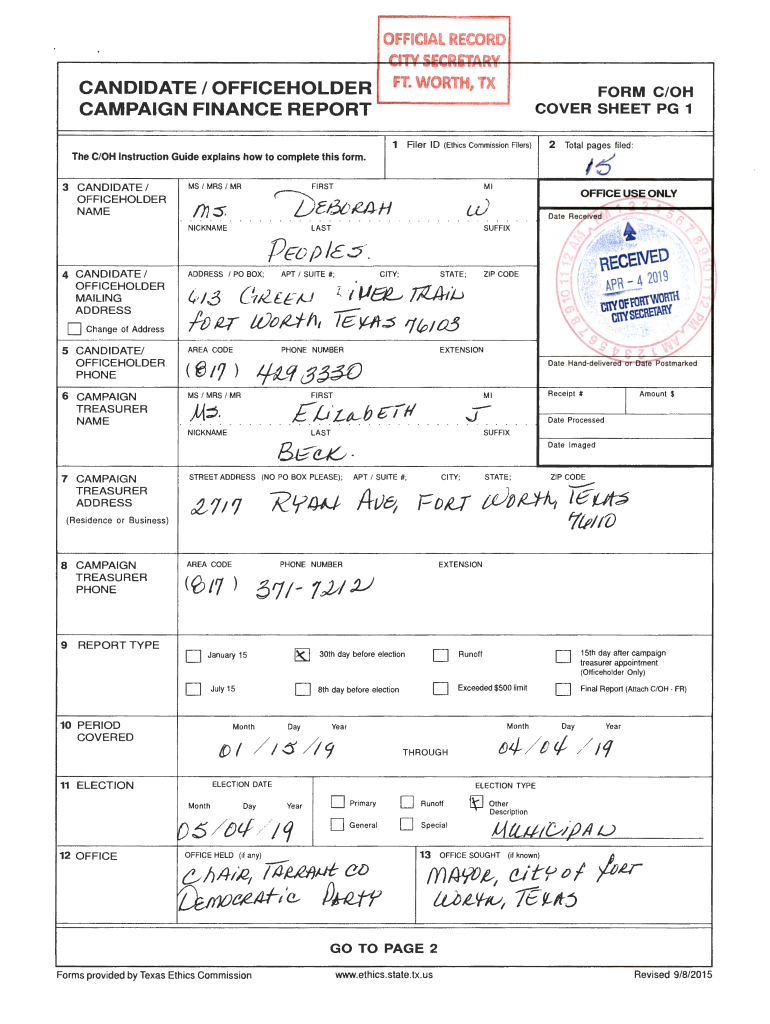 OFFICIAL RECORD
CITY SECRETARY
FT. WORTH, TX
CANDIDATE / OFFICEHOLDER
CAMPAIGN FINANCE REPORT
FORM C/OH
COVER SHEET PG 1
The C/OH Instruction Guide explains how to complete this form.
1 Filer ID (Ethics Commission Filers)
2 Total pages filed:
15
3 CANDIDATE / OFFICEHOLDER NAME
MS / MRS / MR FIRST MI
MS. DEBORAH W
NICKNAME LAST SUFFIX
PEOPLES.
OFFICE USE ONLY
Date Received
RECEIVED
APR - 4 2019
CITY OF FORT WORTH
CITY SECRETARY
4 CANDIDATE / OFFICEHOLDER MAILING ADDRESS
Change of Address
ADDRESS / PO BOX; APT / SUITE #; CITY; STATE; ZIP CODE
613 GREEN RIVER TRAIL
FORT WORTH, TEXAS 76103
5 CANDIDATE/ OFFICEHOLDER PHONE
AREA CODE PHONE NUMBER EXTENSION
(817) 429 3330
Date Hand-delivered or Date Postmarked
6 CAMPAIGN TREASURER NAME
MS / MRS / MR FIRST MI
MS. ELIZABETH J
NICKNAME LAST SUFFIX
BECK.
Receipt # Amount $
Date Processed
Date Imaged
7 CAMPAIGN TREASURER ADDRESS
(Residence or Business)
STREET ADDRESS (NO PO BOX PLEASE); APT / SUITE #; CITY; STATE; ZIP CODE
2717 RYAN AVE, FORT WORTH, TEXAS
76110
8 CAMPAIGN TREASURER PHONE
AREA CODE PHONE NUMBER EXTENSION
(817) 371-7212
9 REPORT TYPE
January 15
X 30th day before election
Runoff
15th day after campaign treasurer appointment (Officeholder Only)
July 15
8th day before election
Exceeded $500 limit
Final Report (Attach C/OH - FR)
10 PERIOD COVERED
Month Day Year
01 / 15 / 19
THROUGH
Month Day Year
04 / 04 / 19
11 ELECTION
ELECTION DATE
Month Day Year
05/04/19
ELECTION TYPE
Primary
Runoff
X Other Description
General
Special
MUNICIPAL
12 OFFICE
OFFICE HELD (if any)
CHAIR, TARRANT CO
DEMOCRATIC PARTY
13 OFFICE SOUGHT (if known)
MAYOR, CITY OF FORT
WORTH, TEXAS
GO TO PAGE 2
Forms provided by Texas Ethics Commission
www.ethics.state.tx.us
Revised 9/8/2015